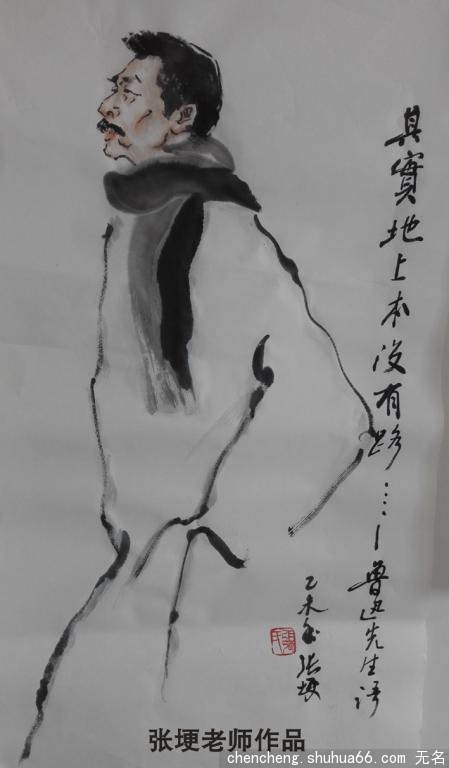 其實地上本没有路……—魯迅先生语
乙未冬张埂
张埂老师作品
chencheng.shuhua66.com 无名